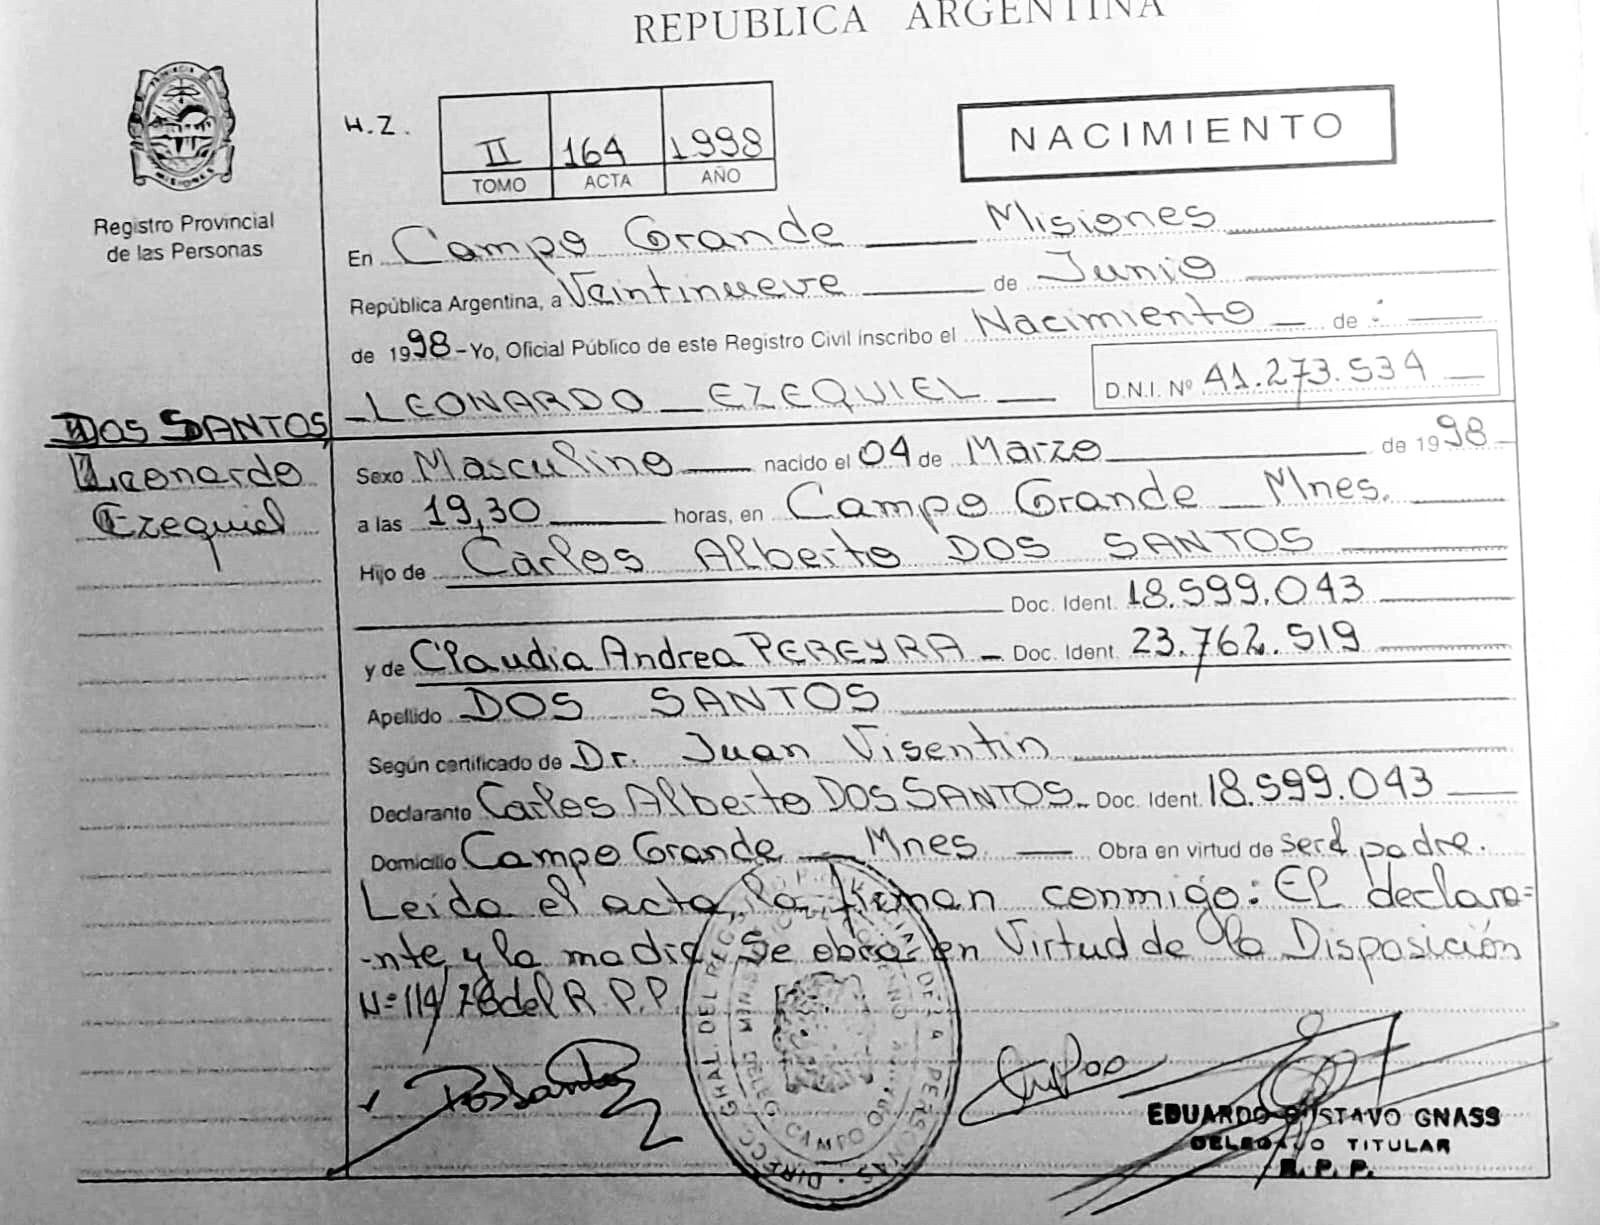 REPUBLICA ARGENTINA
PROVINCIA
MISIONES
Registro Provincial
de las Personas
H.Z.
II 164 1998
TOMO ACTA AÑO
NACIMIENTO
En Campo Grande Misiones
República Argentina, a Veintinueve de Junio
de 1998 - Yo, Oficial Público de este Registro Civil inscribo el Nacimiento de :
LEONARDO EZEQUIEL D.N.I. Nº 41.273.534
DOS SANTOS,
Leonardo
Ezequiel
Sexo Masculino nacido el 04 de Marzo de 1998
a las 19,30 horas, en Campo Grande Mnes.
Hijo de Carlos Alberto DOS SANTOS
Doc. Ident. 18.599.043
y de Claudia Andrea PEREYRA - Doc. Ident. 23.762.519
Apellido DOS SANTOS
Según certificado de Dr. Juan Visentin
Declarante Carlos Alberto DOS SANTOS - Doc. Ident. 18.599.043
Domicilio Campo Grande Mnes Obra en virtud de ser el padre.
Leida el acta, la firman conmigo: El declara=
-nte y la madre. Se obra en Virtud de la Disposición
N= 114/78 del R.P.P.
DosSantos
EDUARDO GUSTAVO GNASS
DELEGADO TITULAR
R. P. P.